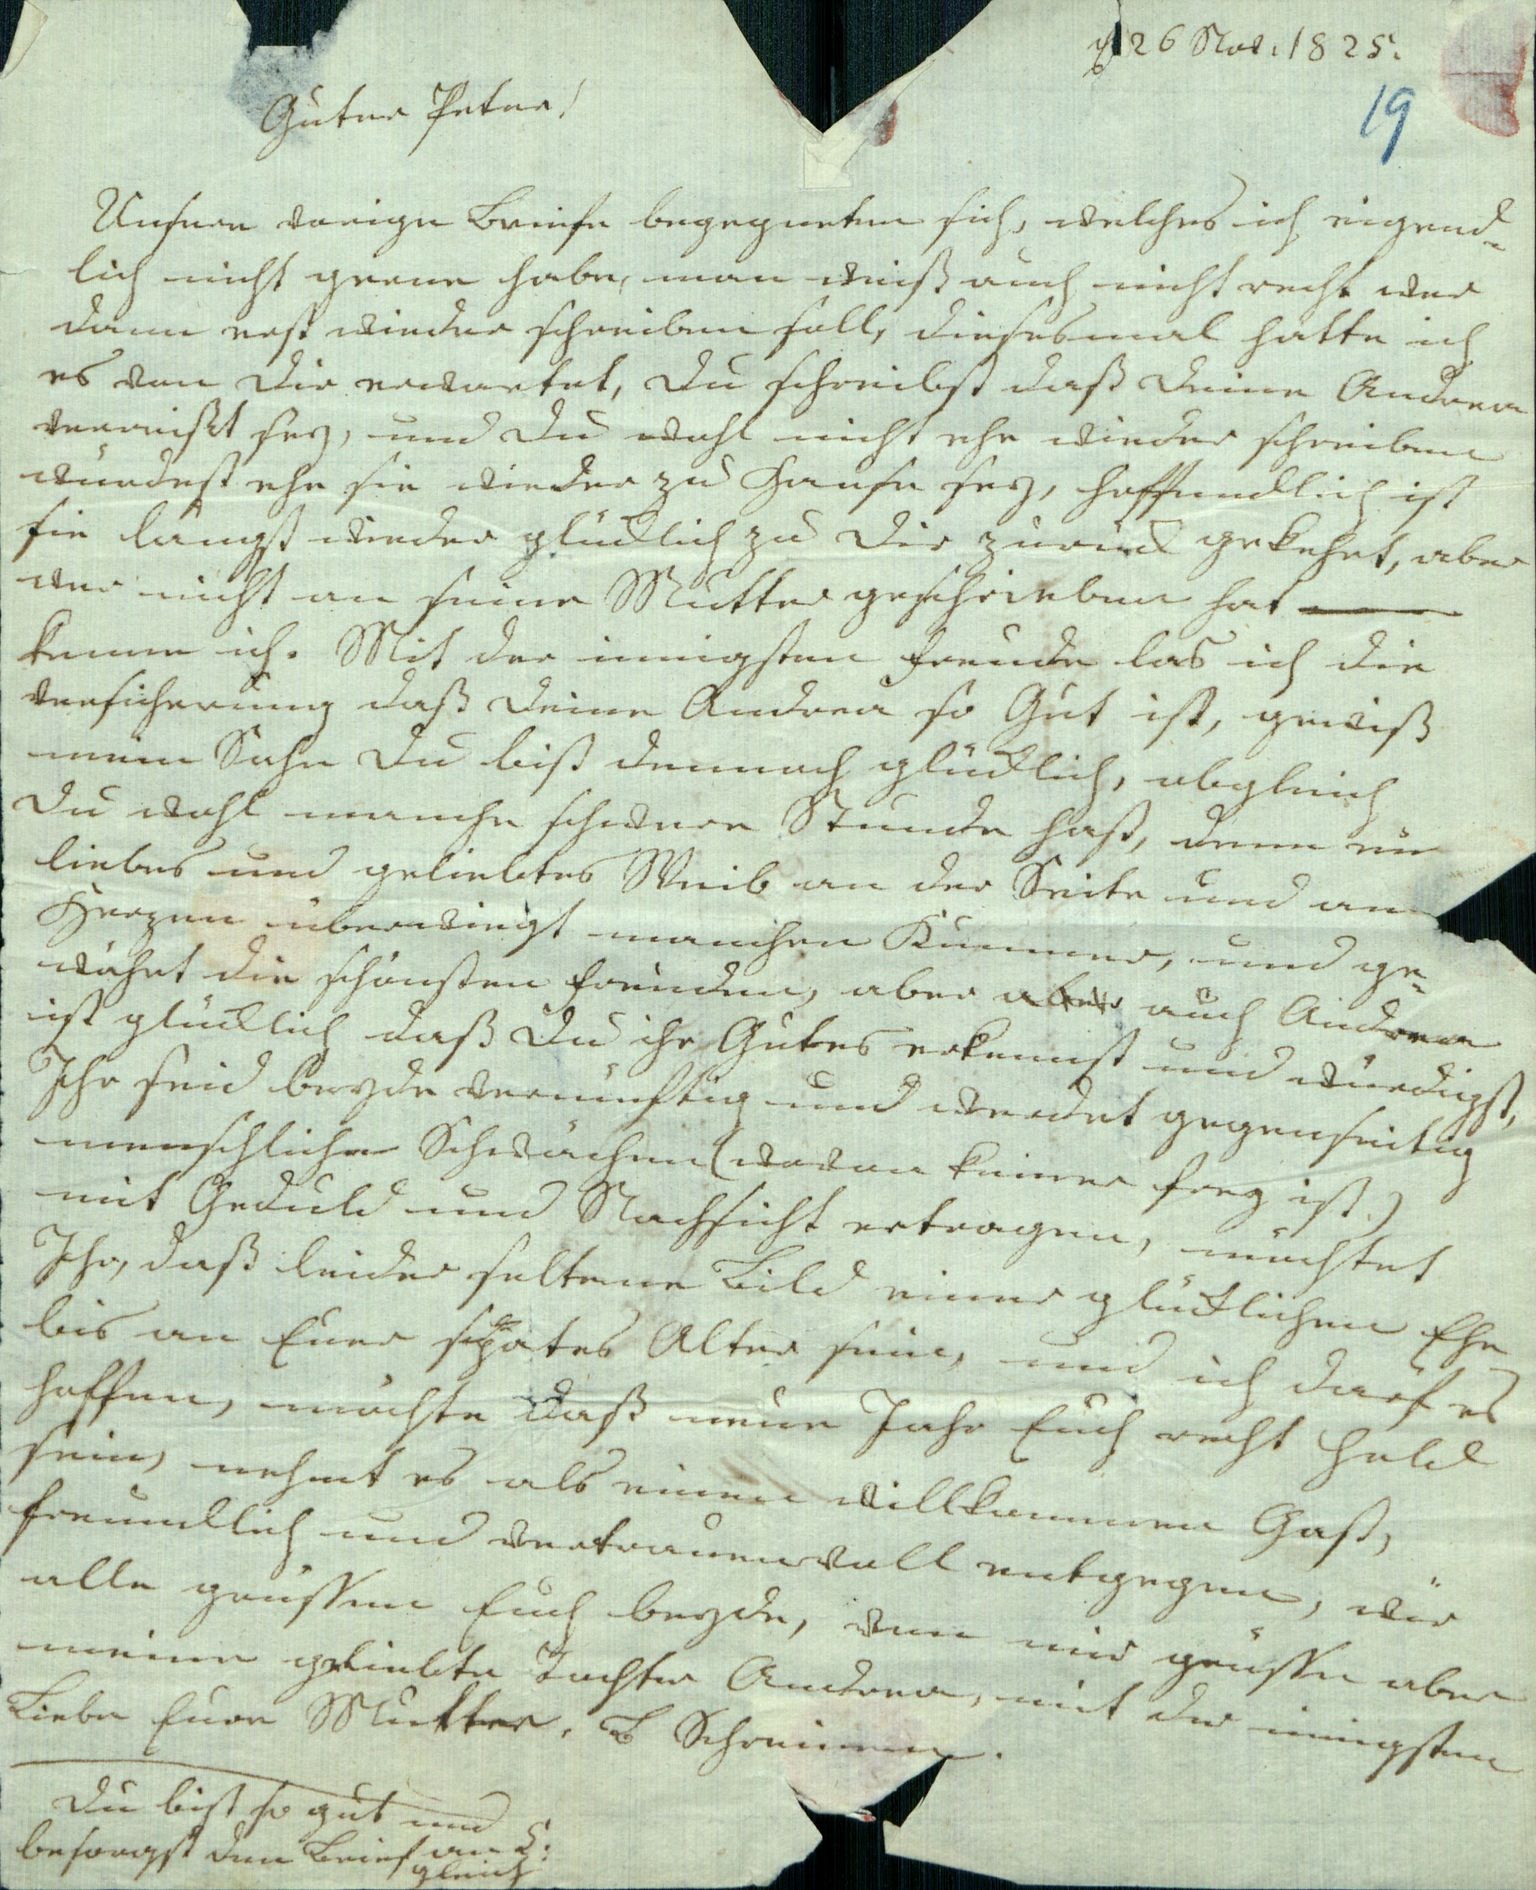 d 26 Nov: 1825.
19
Guter Peter!
Unsere vorige Briefe begegneten sich, welches ich eigend-
lich nicht gerne habe, man weiß auch nicht recht wer
dann erst wieder schreiben soll, diesesmal hatte ich
es von Dir erwartet, Du schreibst daß Deine Andrea
verreißt sey, und Du wohl nicht ehe wieder schreiben
würdest ehe sie wieder zu Hause sey, hoffendlich ist
sie längst wieder glücklich zu Dir zurück gekehrt, aber
wer nicht an seine Mutter geschrieben hat —
kenne ich. Mit der innigsten Freude las ich die
versicherung daß Deine Andrea so Gut ist, gewiß
mein Sohn Du bist dennoch glücklich, obgleich
Du wohl manche schwere Stunde hast, denn ein
liebes und geliebtes Weib an der Seite und am
Herzen überwiegt manchen Kummer, und ge-
währt die schönsten Freuden, aber auch Andrea
ist glücklich daß Du ihr Gutes erkennst und würdigst,
Ihr seid beyde vernünftig und werdet gegenseitig
menschliche Schwächen (wovon keiner frey ist)
mit Geduld und Nachsicht ertragen, möchtet
Ihr, daß leider seltene Bild einer glücklichen Ehe
bis an Euer spätes Alter sein, und ich darf es
hoffen, möchte daß neue Jahr Euch recht hold
sein, nehmt es als einen willkommen Gast,
freundlich und vertrauensvoll entgegen, wir
alle grüssen Euch beyde, von mir grüsse aber
meine geliebte Tochter Andrea, mit der innigsten
Liebe Eure Mutter. B Schreinern.
Du bist so gut und
besorgst den Brief an L:
gleich